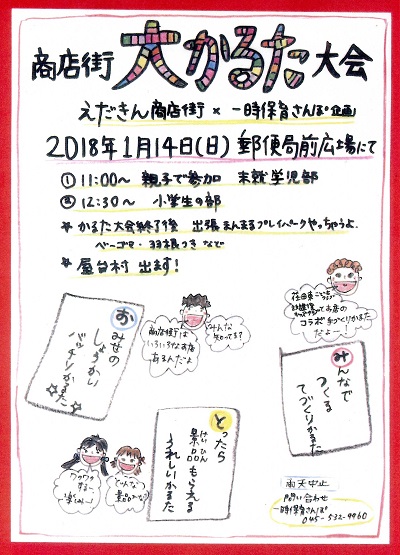 商店街 大かるた 大会
えだきん商店街 × 一時保育さんぽ企画
2018年1月14日(日) 郵便局前広場にて
① 11:00〜 親子で参加 未就学児部
② 12:30〜 小学生の部
☆ かるた大会終了後 出張まんまるプレイパークやっちゃうよ.
ベーゴマ・羽根つき など
☆ 屋台村 出ます!
お
みせの
しょうかい
バッチリかるた
みんな
知ってる?
商店街は
いろいろなお店
あるんだよ
お店の
コラボ手づくりかるた
だよー!
みんなで
つくる
てづくりかるた
とったら
けいひん
景品もらえる
うれしいかるた
ワクワク
するー
楽しみー!
どんな
景品かな?
雨天中止
問い合わせ
一時保育さんぽ
045-532-9960